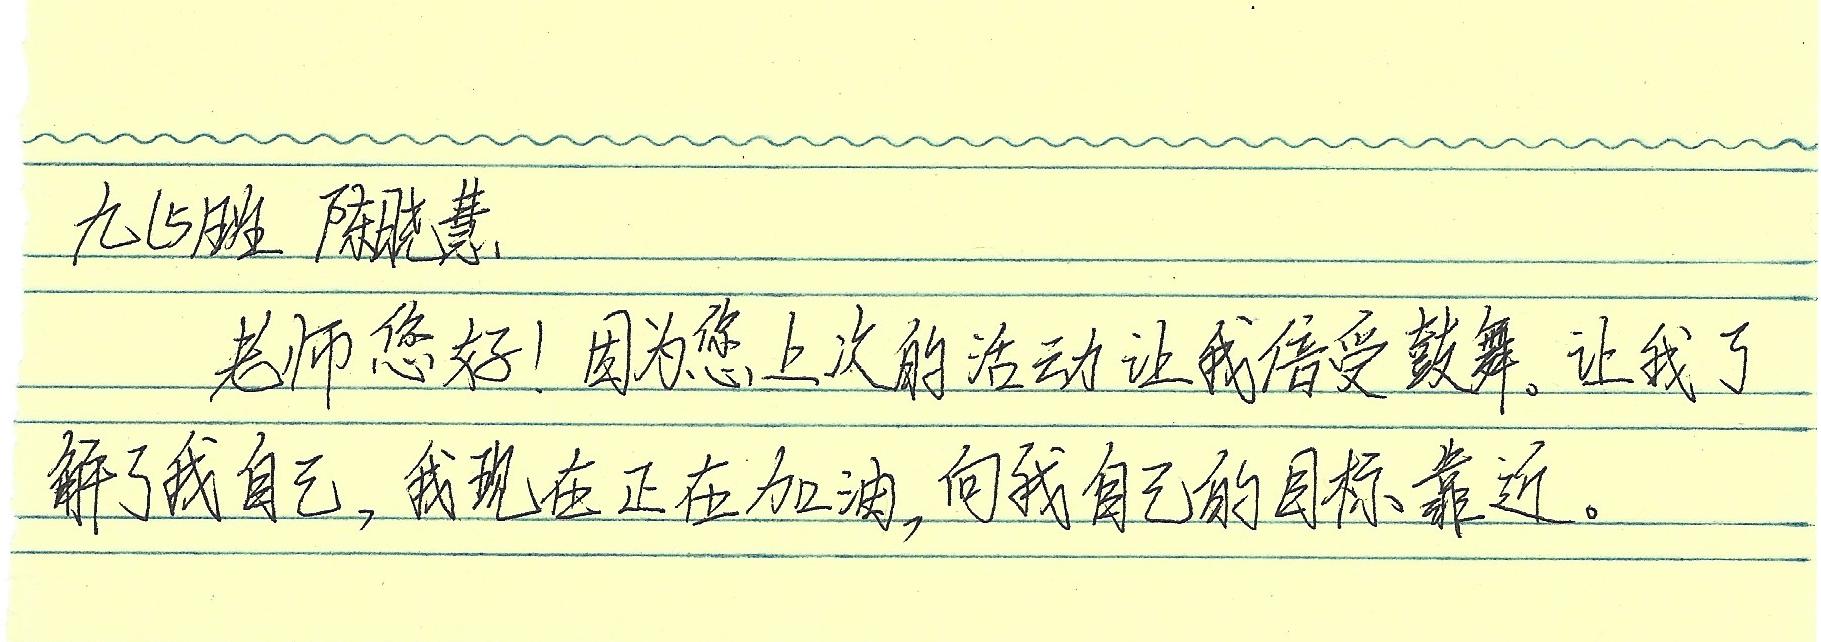 九(5)班 陈晓慧
老师您好！因为您上次的活动让我倍受鼓舞。让我了
解了我自己，我现在正在加油，向我自己的目标靠近。